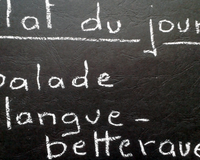 lat du jour
balade
langue-
betterave